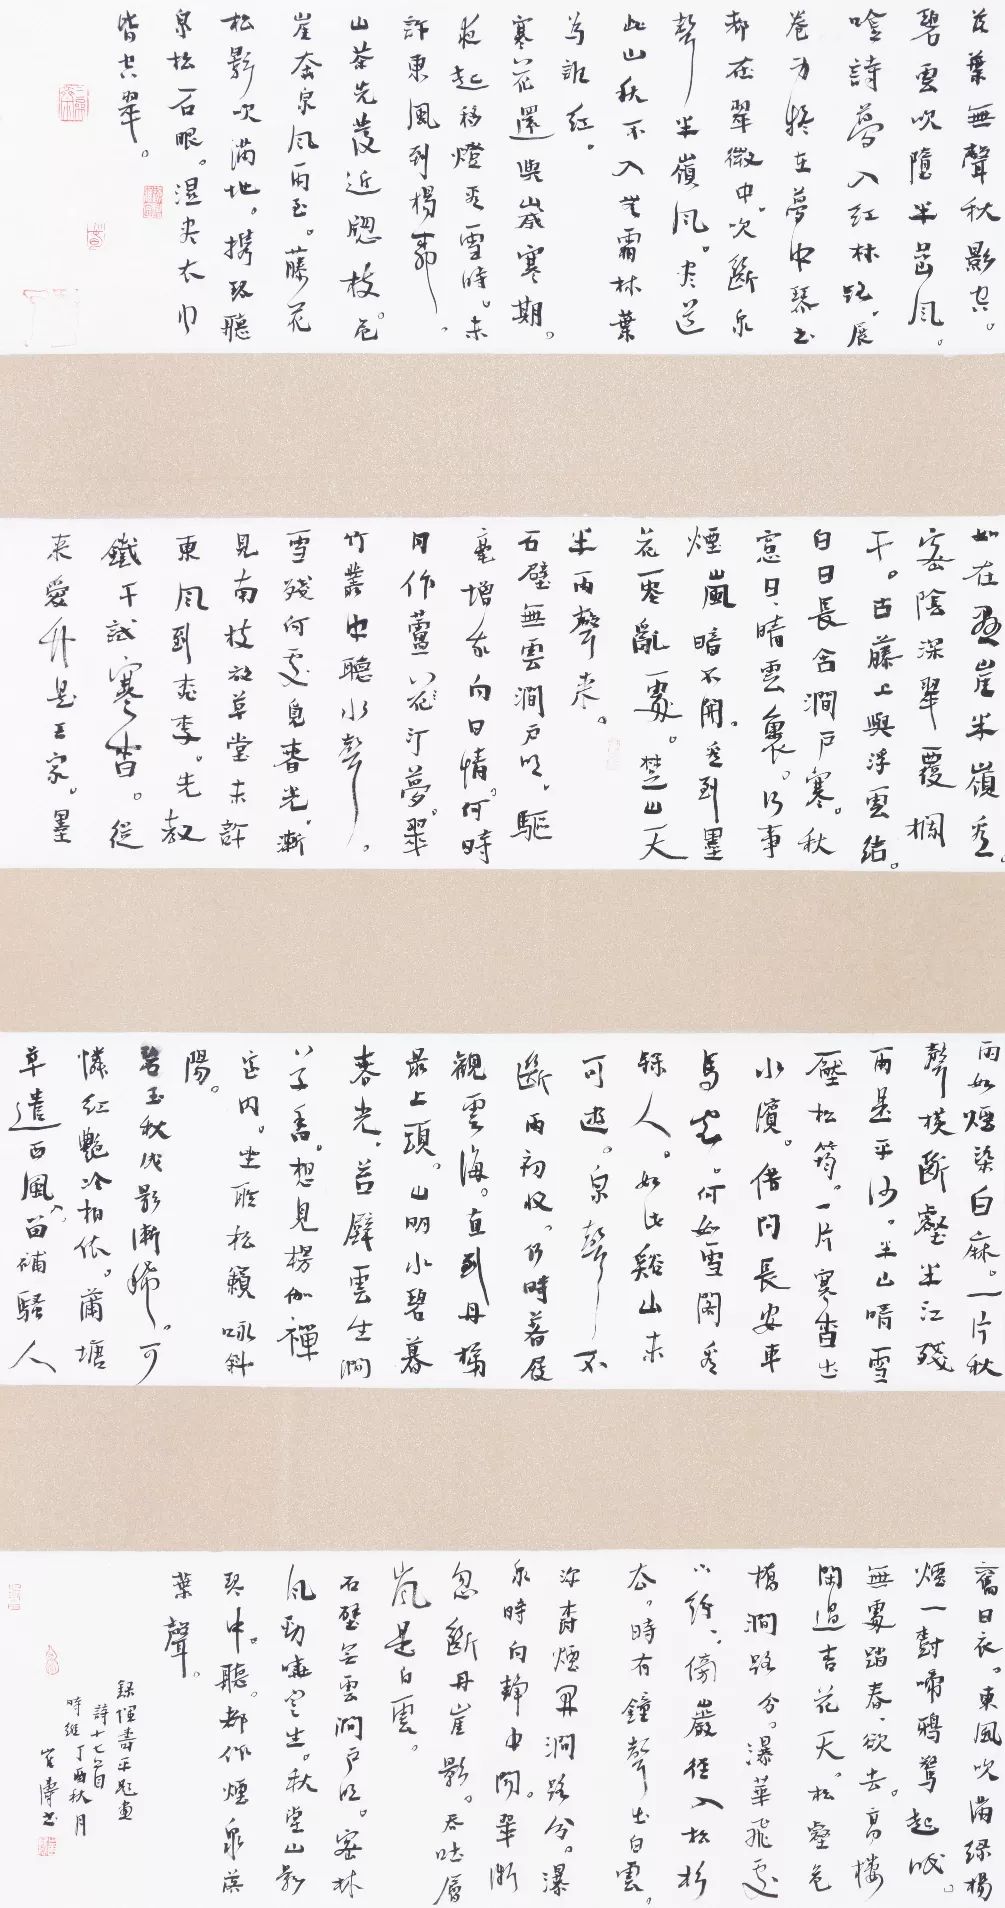 葉無聲秋影空。
碧雲吹墮半岩風。
吟詩夢入紅林路。展
卷方疑在夢中琴書
都在翠微中。吹斷泉
聲半嶺風。盡道
此山秋不入霜林葉
為誰紅。
寒花還與歲寒期。
夜起移燈看雪時。未
許東風到楊
山茶先發近窗枝。危
崖奔泉風雨至。藤花
松影吹滿地。攜琴聽
泉松石眠。濕盡衣巾
皆空翠。
如在丹崖半嶺看。
密陰深翠覆欄
干。古藤上與浮雲結。
白日長含澗戶寒。秋
窓日日晴雲裏。何事
煙嵐暗不開。看到墨
花零亂處。楚山天
半雨聲来。
石壁無雲澗戶明。驅
毫增我向日情。何時
同作蘆花汀夢。翠
竹叢中聽水聲。
雪殘何處覓春光。漸
見南枝放草堂未許
東風到桃李。先教
鐵干試寒香。從
来愛竹是王家。墨
雨如煙染白麻。一片秋
聲横斷壑半江殘
雨是平沙。半山晴雪
壓松筠。一片寒香出
水濱。借問長安車
馬客。何如雪閣看
緑人。如此谿山未
可遊。泉聲不
斷雨初收。何時著屐
觀雲海。直到丹梯
最上頭。山明水碧暮
春光。苔壁雲生澗
子香。想見楞伽禪
定内。坐聽松籟咏斜
陽。
碧玉秋代影漸稀。可
憐紅艷冷相依。蒲塘
草遣西風入。留補騷人
舊日衣。東風吹滿緑楊
煙一樹啼鴉驚起眠。
無處踏春欲去。高樓
閑過杏花天。松壑危
橋澗路分。瀑華飛處
傍巖徑入松杉
去。時有鐘聲出白雲。
弥森煙開澗路分。瀑
泉時向静中聞。翠漸
忽斷丹崖影。吞吐層
嵐是白雲。
石壁無雲澗戶明。密林
風勁嘯寒生。秋堂山影
琴中聽。都作煙泉落
葉聲。
録惲壽平題畫
詩十七首
時維丁酉秋月